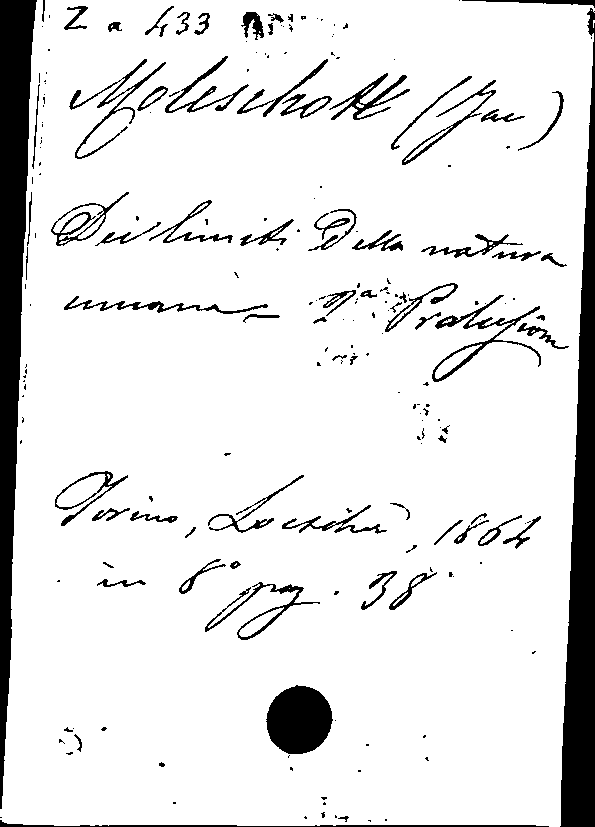 Z a 433
Moleschott (Jac)
Dei limiti della natura
umana = 2ª Prolusione
Torino, Loescher, 1864
in 8° pag. 38